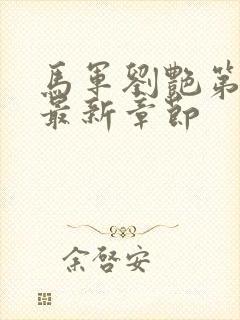 馬軍劉艷第
最新章節
余啓安